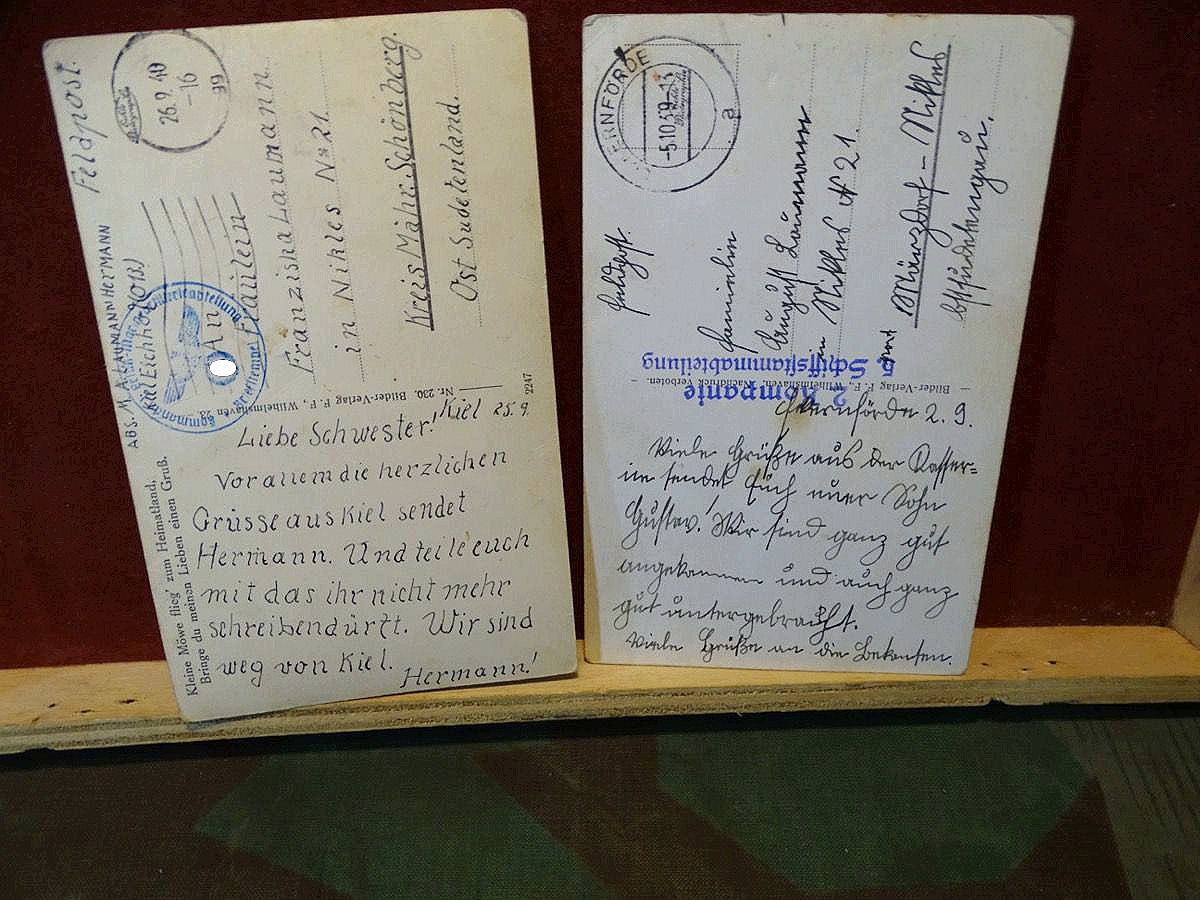 Feldpost.
26.9.40
-16
ABS. M.A. LAUMANN HERMANN
An
Fräulein
Franziska Laumann.
in Nikles № 21.
Kreis Mähr. Schönberg.
Ost Sudetenland.
Nr. 230. Bilder-Verlag F. F., Wilhelmshaven
2247
Kleine Möwe flieg' zum Heimatland,
Bringe du meinen Lieben einen Gruß.
Kiel 25.9.
Liebe Schwester!
Vor allem die herzlichen
Grüsse aus Kiel sendet
Hermann. Und teile euch
mit das ihr nicht mehr
schreiben dürft. Wir sind
weg von Kiel.
Hermann!
ERNFÖRDE
-5.10.39
a
Feldpost.
Familie
August Laumann
in Nikles № 21.
Post Märzdorf - Nikles
Ostsudetengau.
2. Kompanie
5. Schiffsstammabteilung
— Bilder-Verlag F. F., Wilhelmshaven. Nachdruck verboten. —
Eckernförde 2. 9.
Viele Grüße aus der Kasser=
ne sendet Euch euer Sohn
Gustav! Wir sind ganz gut
angekommen und auch ganz
gut untergebracht.
Viele Grüße an die Bekanten.